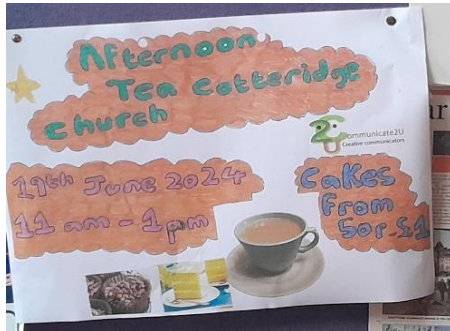 Afternoon
Tea Cotteridge
Church
Communicate2U
Creative communicators
19th June 2024
11 am - 1pm
Cakes
From
50p-£1